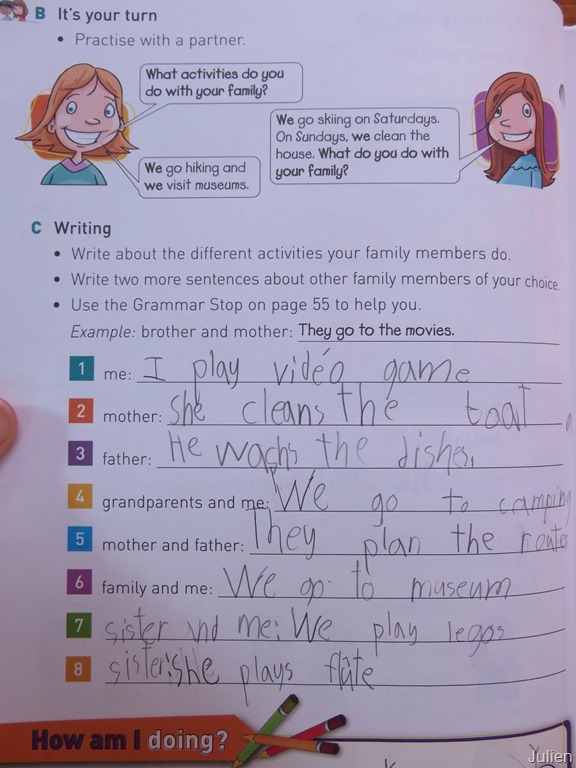 B It's your turn
• Practise with a partner.
What activities do you
do with your family?
We go skiing on Saturdays.
On Sundays, we clean the
house. What do you do with
your family?
We go hiking and
we visit museums.
C Writing
• Write about the different activities your family members do.
• Write two more sentences about other family members of your choice.
• Use the Grammar Stop on page 55 to help you.
Example: brother and mother: They go to the movies.
1 me: I play vidéo game
2 mother: She cleans the boat
3 father: He wachs the dishes.
4 grandparents and me: We go to camping
5 mother and father: They plan the route
6 family and me: We go to museum
7 sister and me: We play legos
8 sister: she plays flûte
How am I doing?
Julien